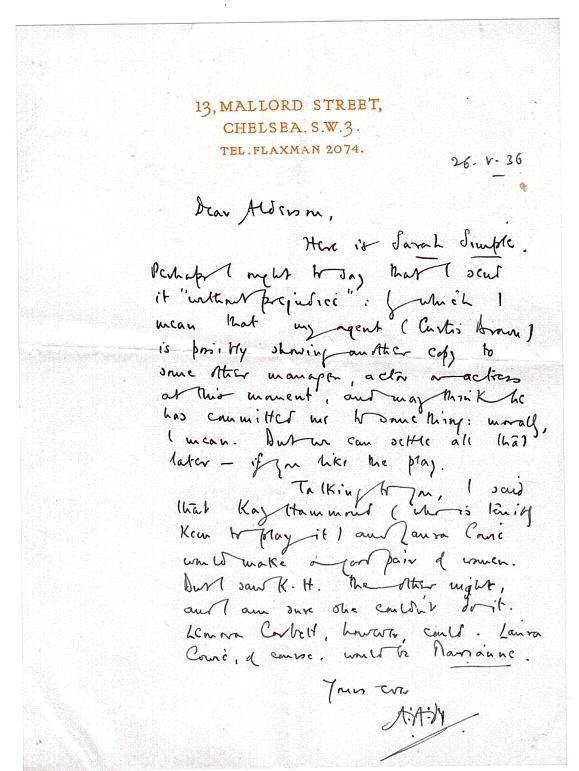 13, MALLORD STREET,
CHELSEA. S.W.3.
TEL: FLAXMAN 2074.
26. V. 36
Dear Alderson,
Here is Sarah Simple.
Perhaps I ought to say that I send
it "without prejudice": by which I
mean that my agent (Curtis Brown)
is possibly showing another copy to
some other manager, actor or actress
at this moment, and may think he
has committed me to something: morally,
I mean. But we can settle all that
later – if you like the play.
Talking to you, I said
that Kay Hammond (who is
keen to play it) and Laura Cowie
would make a good pair of women.
But I saw K.H. the other night,
and I am sure she couldn't do it.
Lenora Corbett, however, could. Laura
Cowie, of course, would be Marianne.
Yours ever
A.A.M